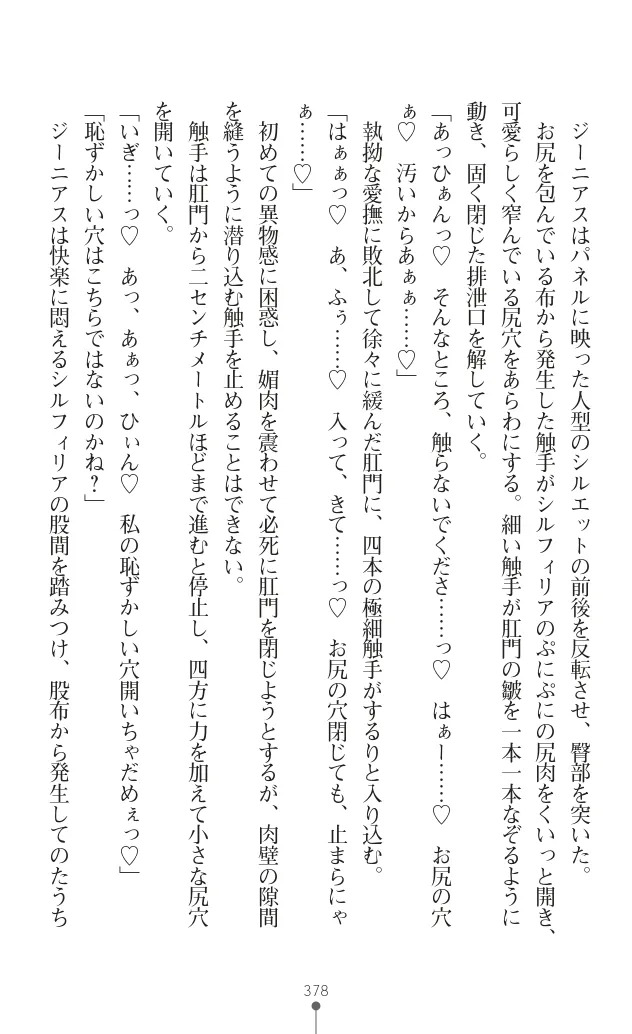 ジーニアスはパネルに映った人型のシルエットの前後を反転させ、臀部を突いた。
お尻を包んでいる布から発生した触手がシルフィリアのぷにぷにの尻肉をくいっと開き、
可愛らしく窄んでいる尻穴をあらわにする。細い触手が肛門の皺を一本一本なぞるように
動き、固く閉じた排泄口を解していく。
「あっひぁんっ♡　そんなところ、触らないでくださ……っ♡　はぁー……♡　お尻の穴
ぁ♡　汚いからあぁぁ……♡」
執拗な愛撫に敗北して徐々に緩んだ肛門に、四本の極細触手がするりと入り込む。
「はぁぁっ♡　あ、ふぅ……♡　入って、きて……っ♡　お尻の穴閉じても、止まらにゃ
ぁ……♡」
初めての異物感に困惑し、媚肉を震わせて必死に肛門を閉じようとするが、肉壁の隙間
を縫うように潜り込む触手を止めることはできない。
触手は肛門から二センチメートルほどまで進むと停止し、四方に力を加えて小さな尻穴
を開いていく。
「いぎ……っ♡　あっ、あぁっ、ひぃん♡　私の恥ずかしい穴開いちゃだめぇっ♡」
「恥ずかしい穴はこちらではないのかね？」
ジーニアスは快楽に悶えるシルフィリアの股間を踏みつけ、股布から発生してのたうち
378